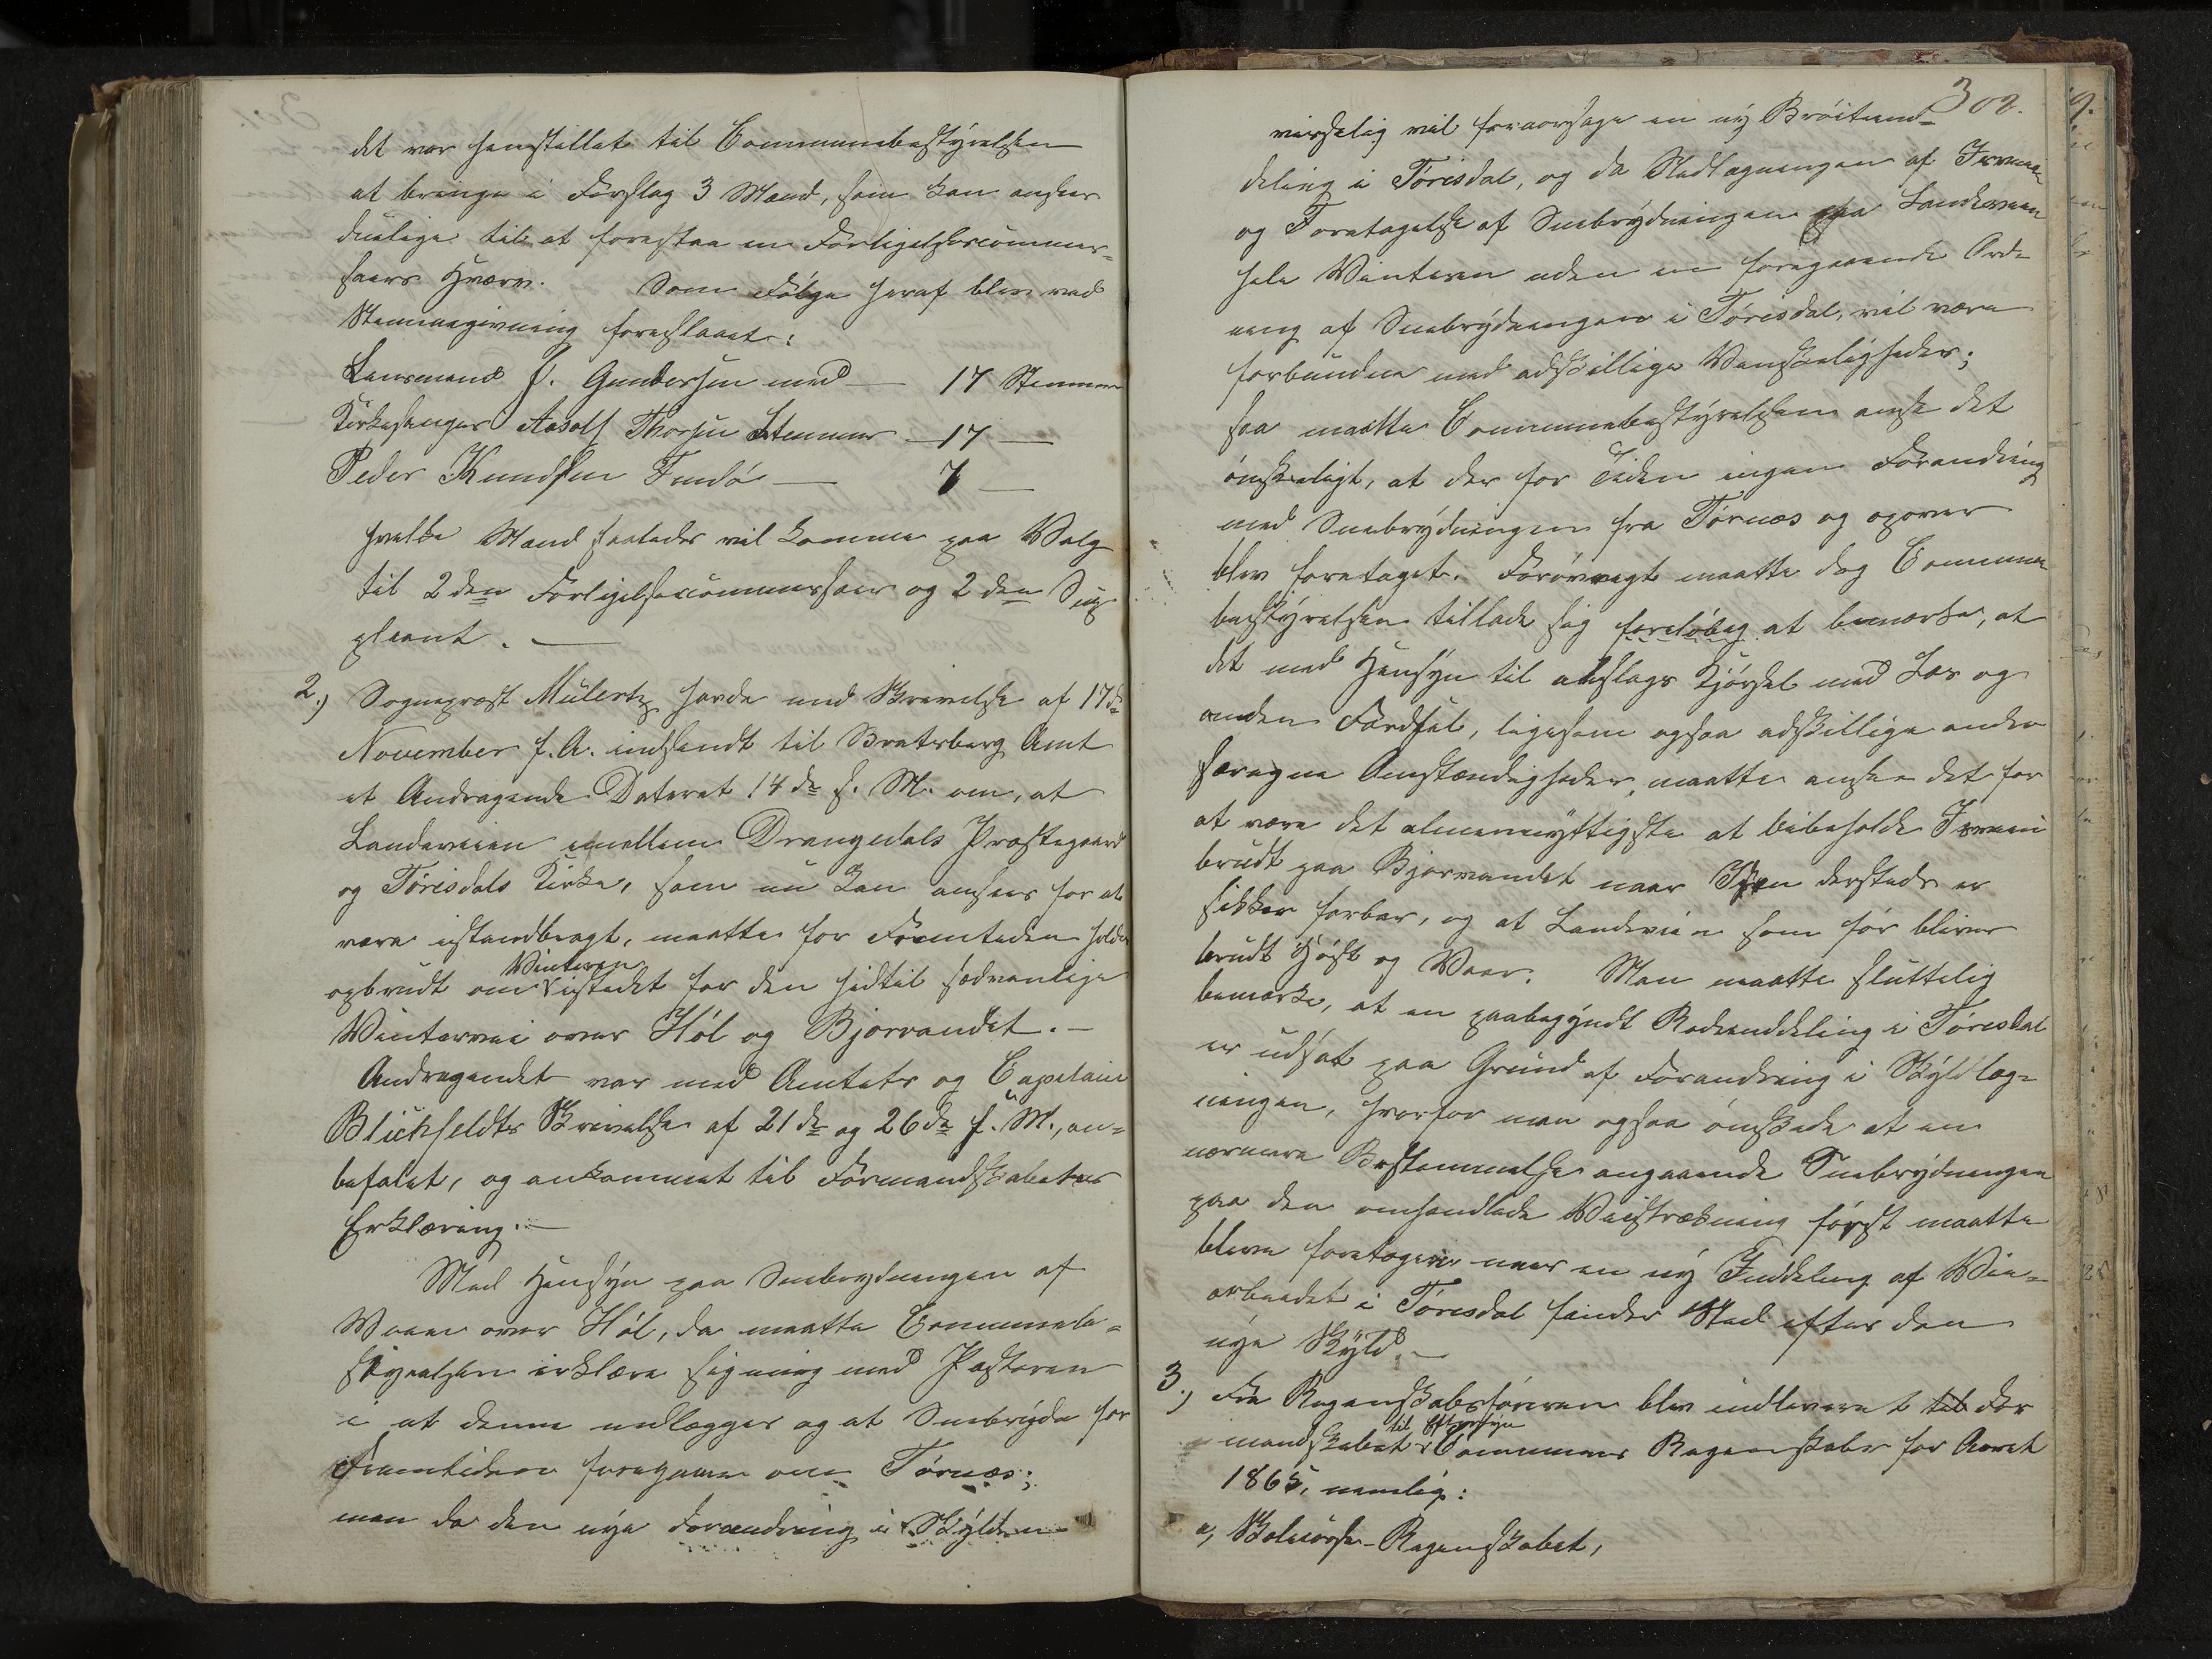 det var henstillet til Communebestyrelsen
at bringe i Forslag 3 Mænd, som kan ansees
duelige til at forestaa en Forligelsescommis=
sairs Hverv. Som Følge heraf blev ved
Stemmegivning foreslaaet:
Lensmand J. Gundersen med — 17 Stemmer
Kirkesanger Aasolf Thorsen Stemmer — 17 —
Peder Knudsen — 7 —
hvilke Mænd saaledes vil komme paa Valg
til 2den Forligelsescommissair og 2den Sup
pleant. —
2.) Sognepræst Mülertz havde med Skrivelse af 17de
November f. A. indsendt til Bratsberg Amt
et Andragende Dateret 14de s. M. om, at
Landeveien imellem Drangedals Præstegaard
og Tørisdals Kirke, som nu kan ansees for at
være istandbragt, maatte for Fremtiden holdes
opbrudt om Vinteren istedet for den hidtil sædvanlige
Vintervei over Høl og Bjorvandet. —
Andragendet var med Amtets og Capitain
Blichfeldts Skrivelse af 21de og 26de s. M., an=
befalet, og ankommet til Formandskabets
Erklæring. —
Med Hensyn paa Snebrydningen af
Veien over Høl, da maatte Communebe=
styrelsen erklære sig enig med Pastoren
i at denne nedlægges og at Snebryde for
Fremtiden foregaaer om Tørnæs;
men da den nye Forandring i Skylden
302.
virkelig vil foraarsage en ny Brøiteind=
deling i Tørisdal, og da Nedlægningen af Isveien
og Foretagelse af Snebrydningen paa Landeveien
hele Vinteren uden en foregaaende Ord=
ning af Snebrydningen i Tørisdal, vil være
forbunden med adskillige Vanskeligheder;
saa maatte Communebestyrelsen anse det
ønskeligt, at der for Tiden ingen Forandring
med Snebrydningen fra Tørnæs og opover
blev foretaget. Forøvrigt maatte dog Commune
bestyrelsen tillade sig foreløbig at bemærke, at
det med Hensyn til alslags Kjørsel med Læs og
anden Færdsel, ligesom ogsaa adskillige andre
særegne Omstændigheder, maatte ansee det for
at være det almennyttigste at bibeholde Isveien
brudt paa Bjorvandet naar Isen dersteds er
sikker farbar, og at Landeveien som før bliver
brudt Høst og Vaar. Man maatte sluttelig
bemærke, at en paabegyndt Rodeinddeling i Tørisdal
er udsat paa Grund af Forandring i Skyldlæg=
ningen, hvorfor man ogsaa ønskede at en
nærmere Bestemmelse angaaende Snebrydningen
paa den omhandlede Veistrækning først maatte
blive foretagen naar en ny Inddeling af Vei=
arbeidet i Tørisdal finder Sted efter den
nye Skyld. —
3.) Fra Regenskabsføreren blev indleveret til For
mandskabet til Eftersyn Communens Regenskaber for Aaret
1865, nemlig:
a, Skolecasse-Regenskabet,